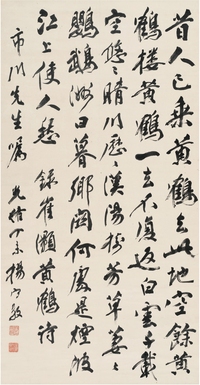 昔人已乘黄鶴去此地空餘黄
鶴樓黄鶴一去不復返白雲千載
空悠々晴川歷々漢陽樹芳草萋々
鸚鵡洲日暮鄉關何處是煙波
江上使人愁 錄崔顥黄鶴詩
市川先生嘱 光緒 楊守敬